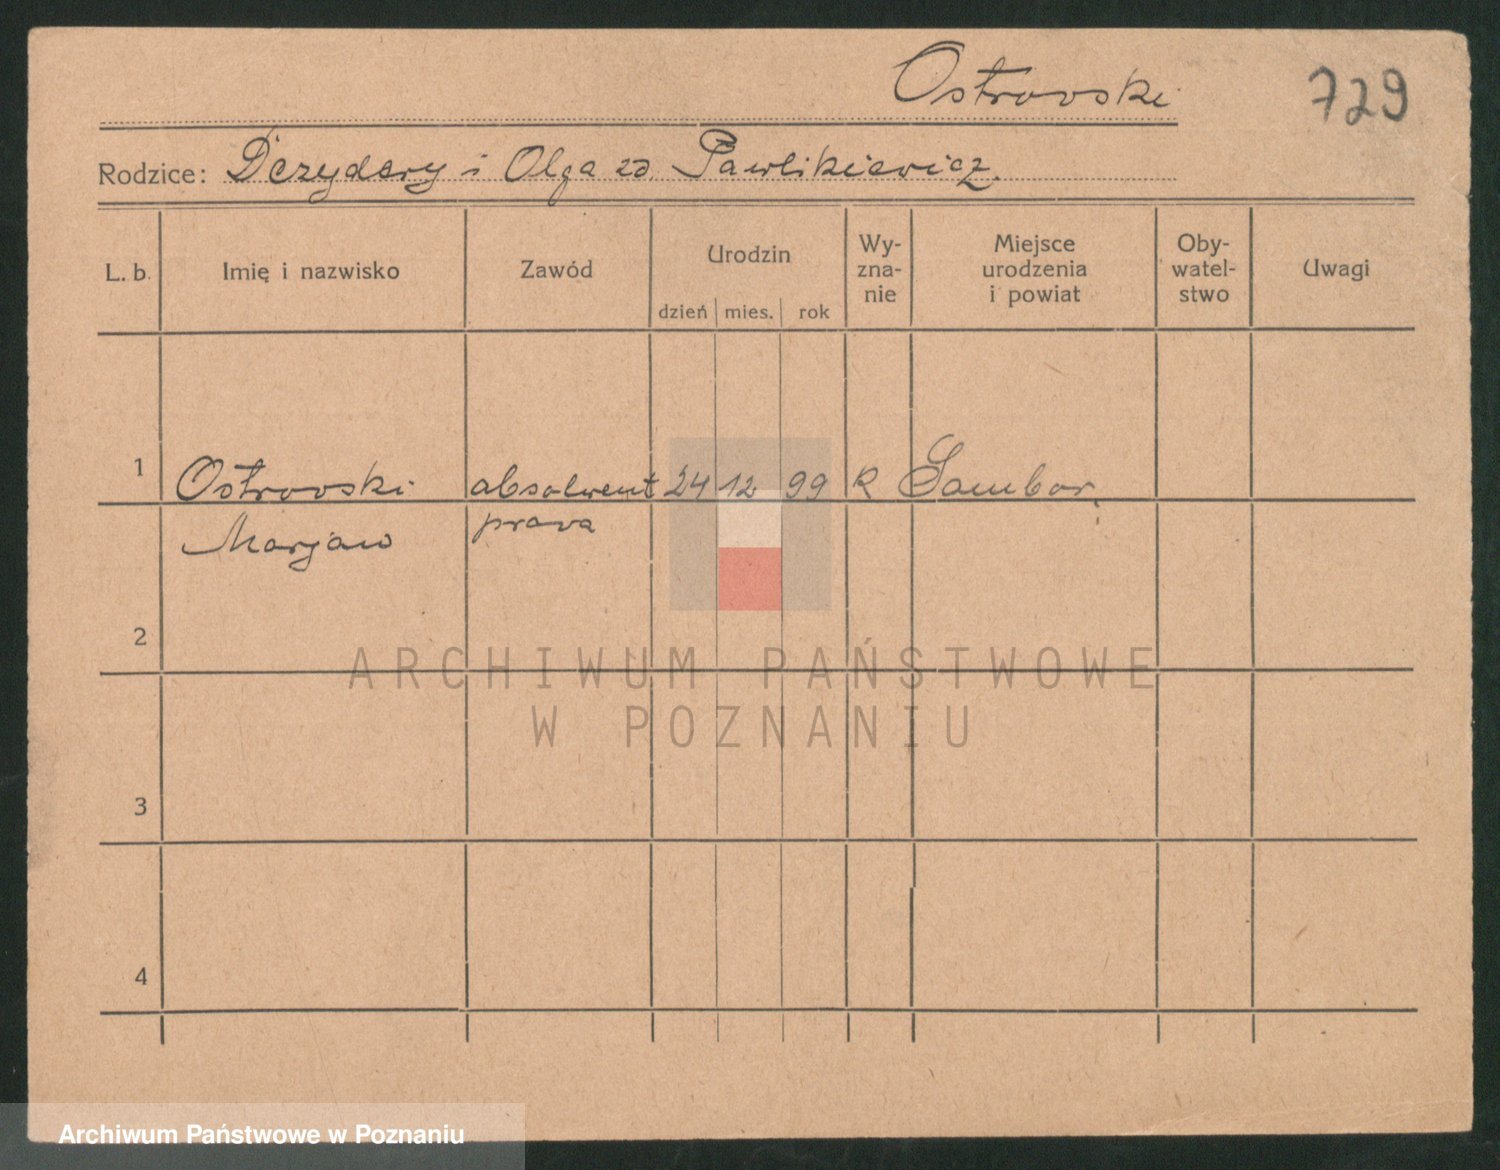 Ostrowski
729
Rodzice: Dezydery i Olga zd. Pawlikiewicz.
L. b. Imię i nazwisko Zawód Urodzin dzień mies. rok Wy-zna-nie Miejsce urodzenia i powiat Oby-watel-stwo Uwagi
1 Ostrowski absolwent 24 12 99 R Sambor
Marjan prawa
2
ARCHIWUM PAŃSTWOWE
W POZNANIU
3
4
Archiwum Państwowe w Poznaniu